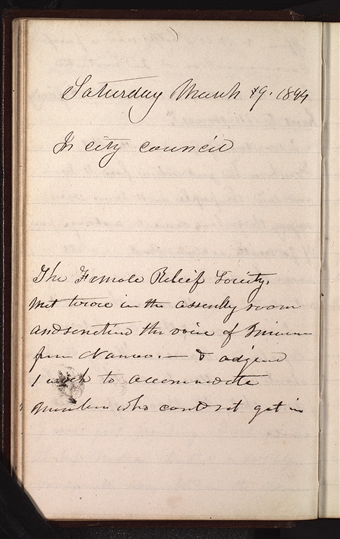 Saturday March 49. 1844
In city council
The Female Relief Society.
met twice in the assembly room
and sinctiend the voice of Inincen
from Nauvoo — & adjend
1 week to accommodate
members who could not get in